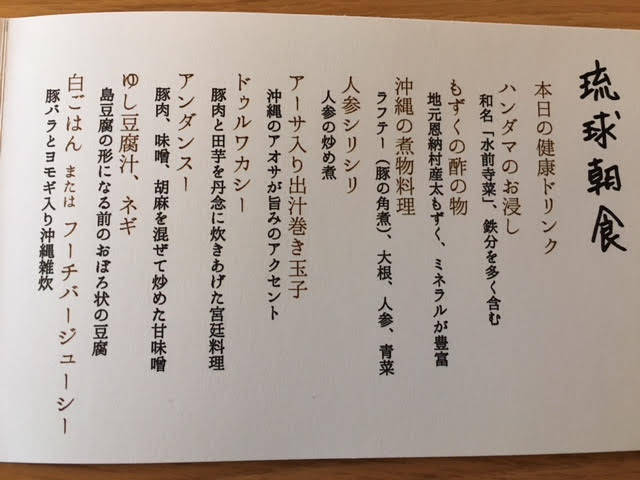 琉球朝食
本日の健康ドリンク
ハンダマのお浸し
和名「水前寺菜」、鉄分を多く含む
もずくの酢の物
地元恩納村産太もずく、ミネラルが豊富
沖縄の煮物料理
ラフテー（豚の角煮）、大根、人参、青菜
人参シリシリ
人参の炒め煮
アーサ入り出汁巻き玉子
沖縄のアオサが旨みのアクセント
ドゥルワカシー
豚肉と田芋を丹念に炊きあげた宮廷料理
アンダンスー
豚肉、味噌、胡麻を混ぜて炒めた甘味噌
ゆし豆腐汁、ネギ
島豆腐の形になる前のおぼろ状の豆腐
白ごはん または フーチバージューシー
豚バラとヨモギ入り沖縄雑炊